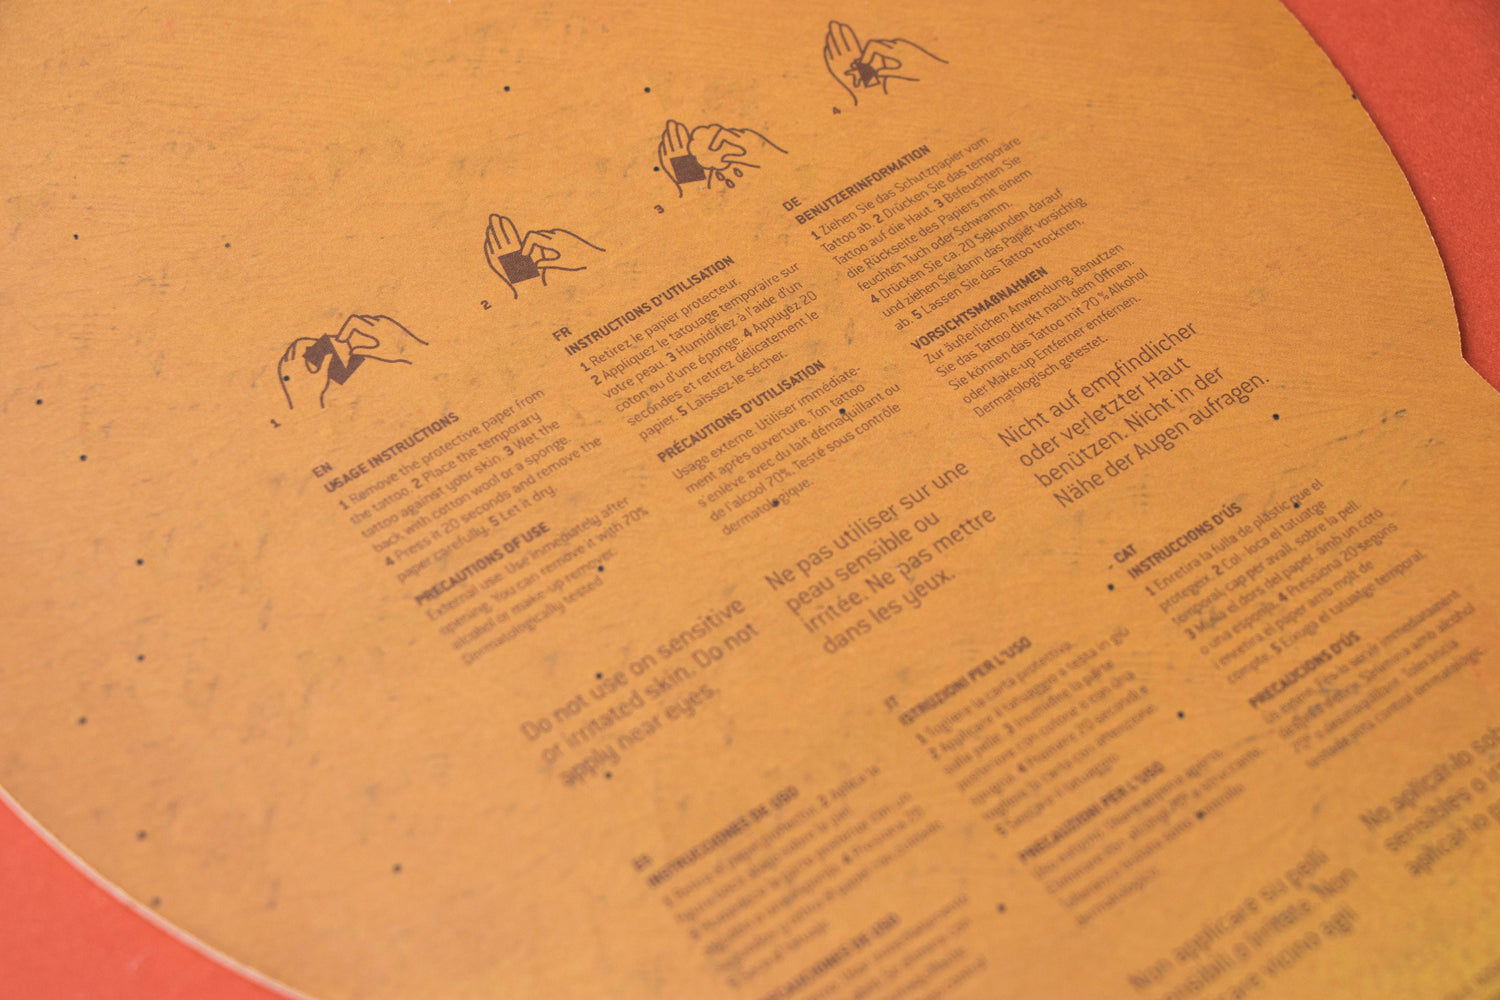 1
2
3
4
EN
USAGE INSTRUCTIONS
1 Remove the protective paper from
the tattoo. 2 Place the temporary
tattoo against your skin. 3 Wet the
back with cotton wool or a sponge.
4 Press it 20 seconds and remove the
paper carefully. 5 Let it dry.
PRECAUTIONS OF USE
External use. Use immediately after
opening. You can remove it with 70%
alcohol or make-up remover.
Dermatologically tested
Do not use on sensitive
or irritated skin. Do not
apply near eyes.
FR
INSTRUCTIONS D'UTILISATION
1 Retirez le papier protecteur.
2 Appliquez le tatouage temporaire sur
votre peau. 3 Humidifiez à l'aide d'un
coton ou d'une éponge. 4 Appuyez 20
secondes et retirez délicatement le
papier. 5 Laissez-le sécher.
PRÉCAUTIONS D'UTILISATION
Usage externe. Utiliser immédiate-
ment après ouverture. Ton tattoo
s'enlève avec du lait démaquillant ou
de l'alcool 70%. Testé sous contrôle
dermatologique.
Ne pas utiliser sur une
peau sensible ou
irritée. Ne pas mettre
dans les yeux.
DE
BENUTZERINFORMATION
1 Ziehen Sie das Schutzpapier vom
Tattoo ab. 2 Drücken Sie das temporäre
Tattoo auf die Haut. 3 Befeuchten Sie
die Rückseite des Papiers mit einem
feuchten Tuch oder Schwamm.
4 Drücken Sie ca. 20 Sekunden darauf
und ziehen Sie dann das Papier vorsichtig
ab. 5 Lassen Sie das Tattoo trocknen.
VORSICHTSMAßNAHMEN
Zur äußerlichen Anwendung. Benutzen
Sie das Tattoo direkt nach dem Öffnen.
Sie können das Tattoo mit 70 % Alkohol
oder Make-up Entferner entfernen.
Dermatologisch getestet.
Nicht auf empfindlicher
oder verletzter Haut
benützen. Nicht in der
Nähe der Augen aufragen.
ES
INSTRUCCIONES DE USO
1 Retira el papel protector. 2 Aplica la
PRECAUCIONES DE USO
IT
ISTRUZIONI PER L'USO
1 Togliere la carta protettiva.
2 Applicare il tatuaggio a testa in giù
sulla pelle. 3 Inumidire la parte
posteriore con cotone o con una
spugna. 4 Premere 20 secondi e
togliere la carta con attenzione
5 Seccare il tatuaggio.
PRECAUZIONI PER L'USO
Non applicare su pelli
sensibili o irritate. Non
care vicino agli
CAT
INSTRUCCIONS D'ÚS
1 Enretira la fulla de plàstic que el
protegeix. 2 Col·loca el tatuatge
temporal, cap per avall, sobre la pell.
3 Mulla el dors del paper amb un cotó
o una esponja. 4 Pressiona 20 segons
i enretira el paper amb molt de
compte. 5 Eixuga el tatuatge temporal.
PRECAUCIONS D'ÚS
No aplicar-lo sob
sensibles o i
aplicar-lo p